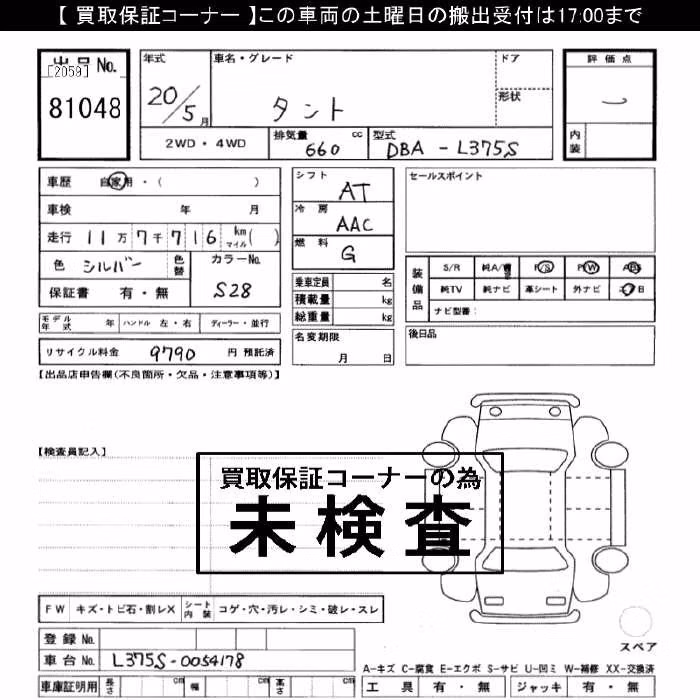 【 買取保証コーナー 】この車両の土曜日の搬出受付は17:00まで
出品No.
[2059]
81048
年式
20/5月
車名・グレード
タント
ドア
形状
評価点
内装
2WD・4WD
排気量 cc
660
型式
DBA - L375S
車歴 自家用・( )
車検 年 月
走行 11万7千716 km マイル( )
色 シルバー
色替
カラーNo.
S28
保証書 有・無
モデル年式 年 ハンドル 左・右 ディーラー・並行
リサイクル料金 9790 円 預託済
シフト AT
冷房 AAC
燃料 G
乗車定員 名
積載量 kg
総重量 kg
名変期限
月 日
セールスポイント
装備品
S/R 純A/W P/S P/W ABS
純TV 純ナビ 革シート 外ナビ
ナビ型番:
後日品
【出品店申告欄(不良箇所・欠品・注意事項等)】
【検査員記入】
買取保証コーナーの為
未検査
FW キズ・トビ石・割レX シート内装 コゲ・穴・汚レ・シミ・破レ・スレ
登録No.
車台No. L375S-0054178
車庫証明用 長さ cm 幅 cm 高さ cm
スペア
A-キズ C-腐食 E-エクボ S-サビ U-凹ミ W-補修 XX-交換済
工具 有・無 ジャッキ 有・無